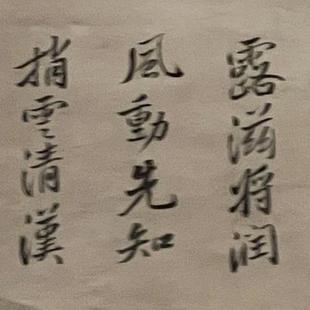 露滋将润
風動先知
捎雲清漢